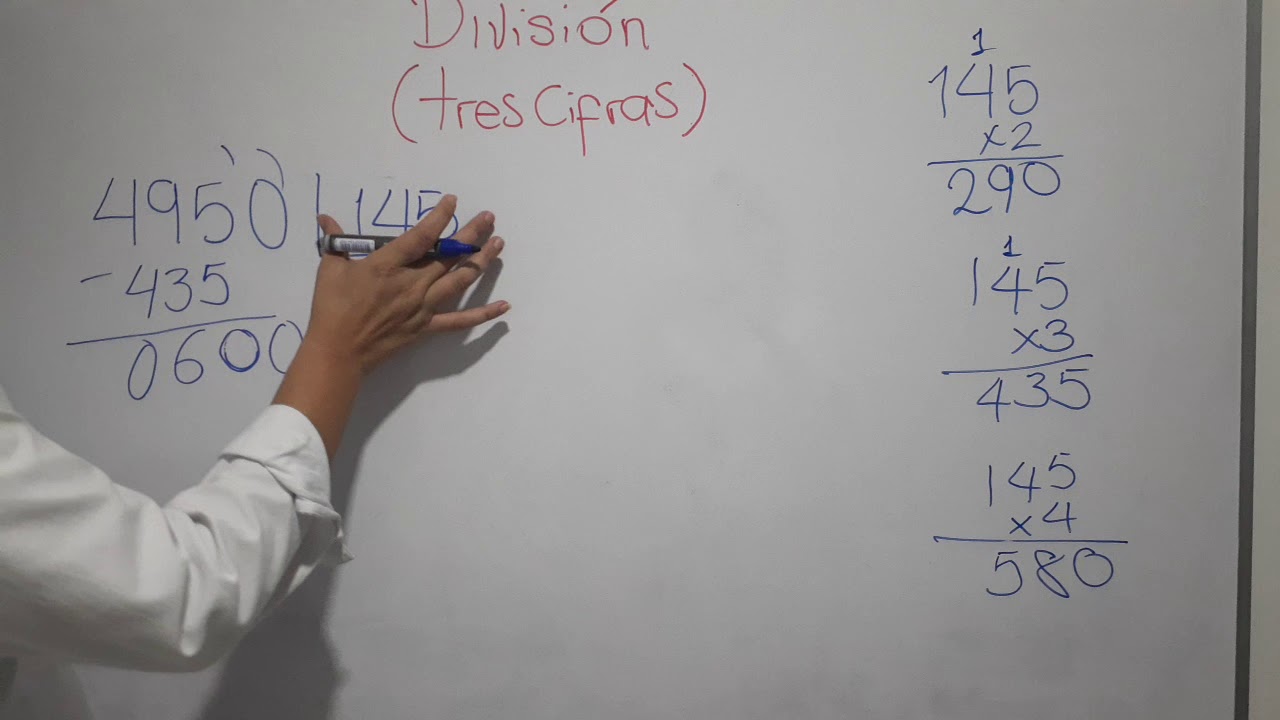 División
(tres cifras)
4950 145
- 435
0600
1
145
x2
290
1
145
x3
435
145
x4
580